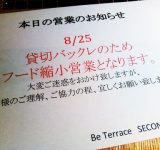 本日の営業のお知らせ
8/25
貸切バックレのため
フード縮小営業となります。
大変ご迷惑をおかけ致しますが、
様のご理解、ご協力の程、宜しくお願い致します
Be Terrace SECON